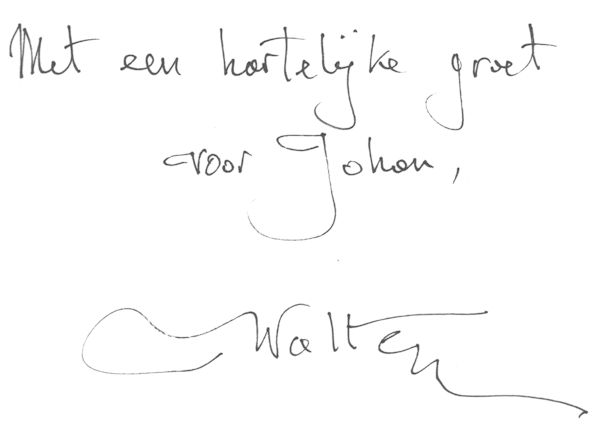 Met een hartelijke groet
voor Johan,
Walter